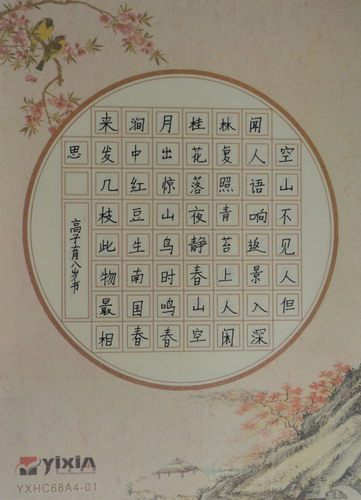 空山不见人但
闻人语响返景入深
林复照青苔上人闲
桂花落夜静春山空
月出惊山鸟时鸣春
涧中红豆生南国春
来发几枝此物最相
思
高子育八岁书
yixin
YXHC68A4-01